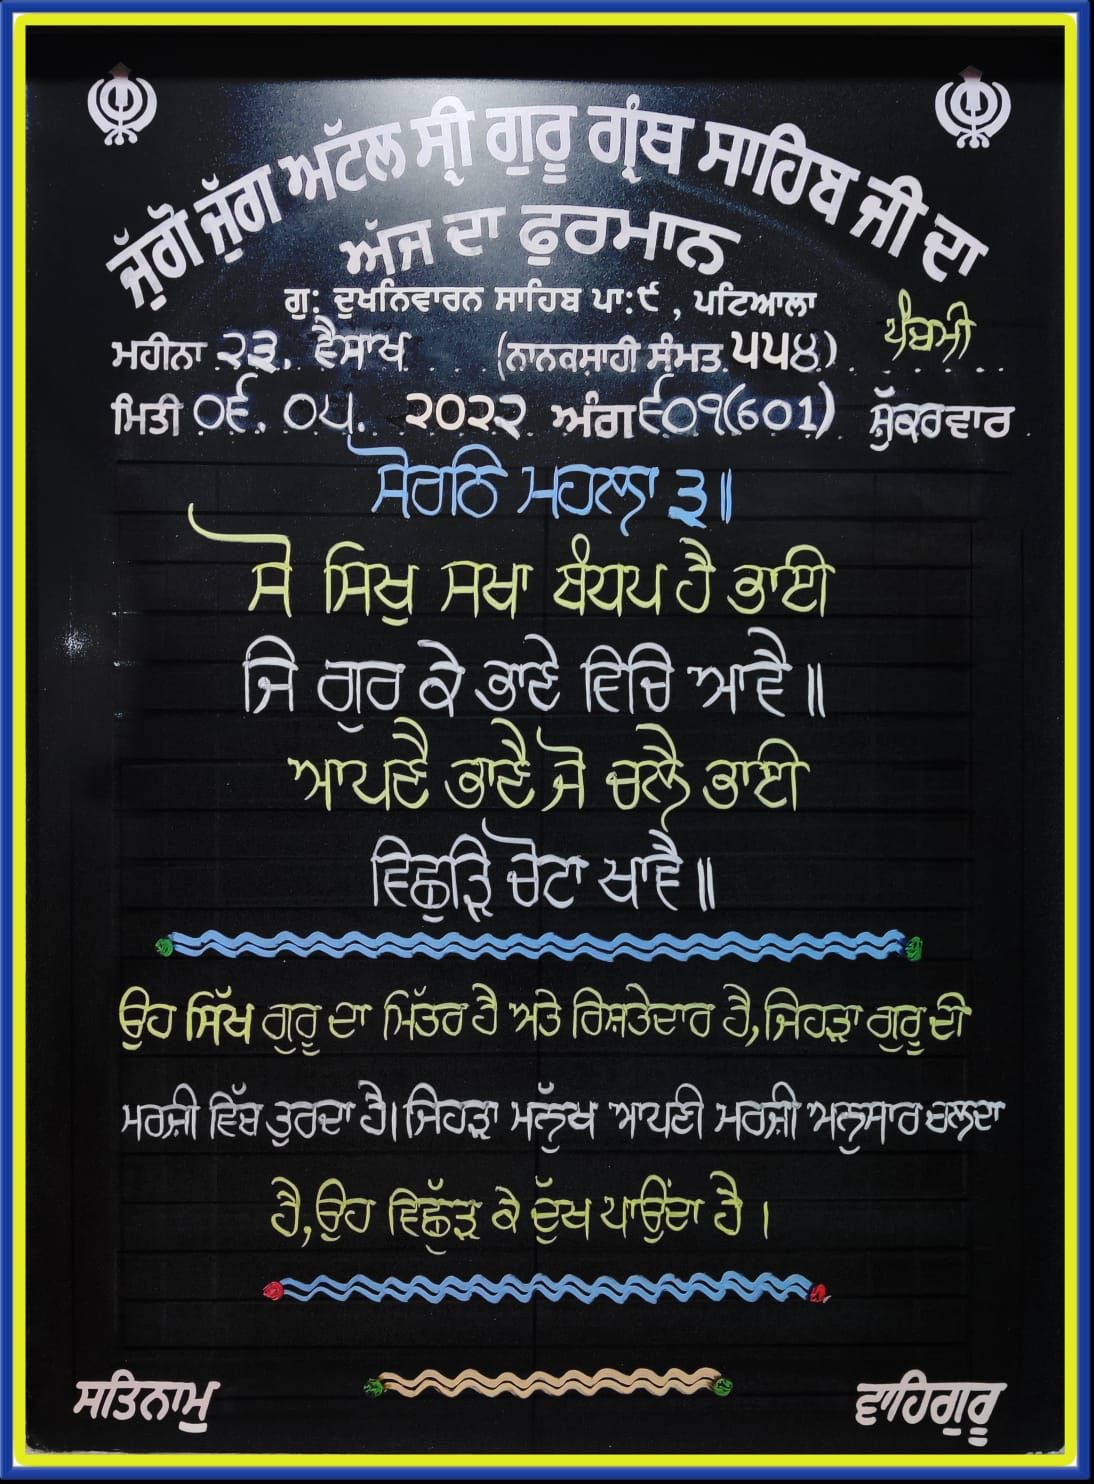 ਜੁੱਗੋ ਜੁੱਗ ਅਟੱਲ ਸ੍ਰੀ ਗੁਰੂ ਗ੍ਰੰਥ ਸਾਹਿਬ ਜੀ ਦਾ
ਅੱਜ ਦਾ ਫੁਰਮਾਨ
ਗੁ: ਦੁਖਨਿਵਾਰਨ ਸਾਹਿਬ ਪਾ:੯, ਪਟਿਆਲਾ
ਮਹੀਨਾ ੨੩. ਵੈਸਾਖ (ਨਾਨਕਸ਼ਾਹੀ ਸੰਮਤ ੫੫੪) ਪੰਚਮੀ
ਮਿਤੀ ੦੬. ੦੫. ੨੦੨੨ ਅੰਗ ੬੦੧(601) ਸ਼ੁੱਕਰਵਾਰ
ਸੋਰਠਿ ਮਹਲਾ ੩॥
ਸੋ ਸਿਖੁ ਸਖਾ ਬੰਧਪੁ ਹੈ ਭਾਈ
ਜਿ ਗੁਰ ਕੇ ਭਾਣੇ ਵਿਚਿ ਆਵੈ॥
ਆਪਣੈ ਭਾਣੈ ਜੋ ਚਲੈ ਭਾਈ
ਵਿਛੁੜਿ ਚੋਟਾ ਖਾਵੈ॥
ਉਹ ਸਿੱਖ ਗੁਰੂ ਦਾ ਮਿੱਤਰ ਹੈ ਅਤੇ ਰਿਸ਼ਤੇਦਾਰ ਹੈ,ਜਿਹੜਾ ਗੁਰੂ ਦੀ
ਮਰਜ਼ੀ ਵਿੱਚ ਤੁਰਦਾ ਹੈ। ਜਿਹੜਾ ਮਨੁੱਖ ਆਪਣੀ ਮਰਜ਼ੀ ਅਨੁਸਾਰ ਚਲਦਾ
ਹੈ,ਉਹ ਵਿਛੁੱੜ ਕੇ ਦੁੱਖ ਪਾਉਂਦਾ ਹੈ।
ਸਤਿਨਾਮੁ ਵਾਹਿਗੁਰੂ